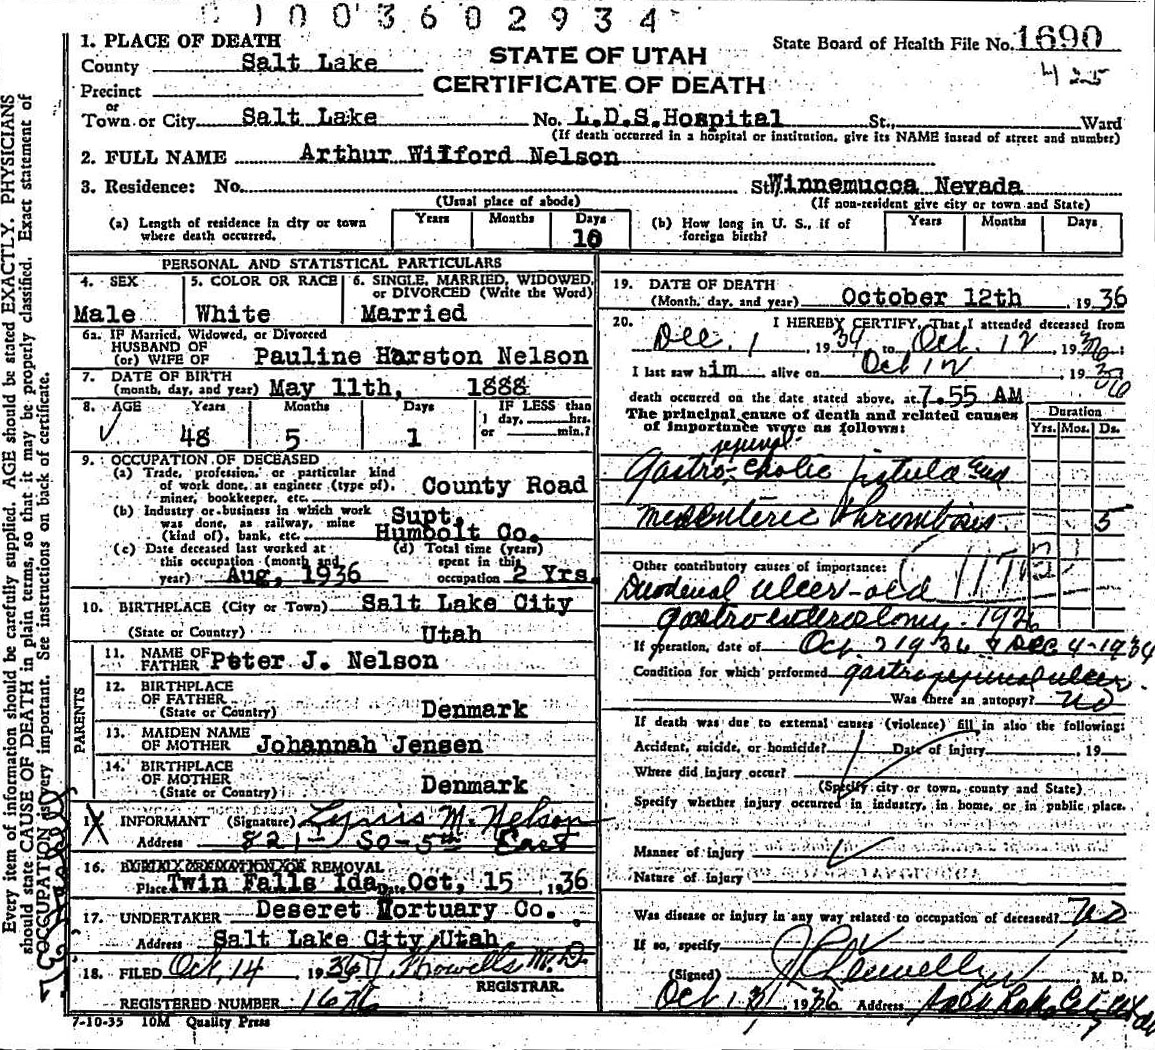 0 1 0 0 3 6 0 2 9 3 4
1. PLACE OF DEATH
STATE OF UTAH
CERTIFICATE OF DEATH
State Board of Health File No. 1690
425
County Salt Lake
Precinct
or
Town or City Salt Lake No. L.D.S. Hospital St., Ward
(If death occurred in a hospital or institution, give its NAME instead of street and number)
2. FULL NAME Arthur Wilford Nelson
3. Residence: No. St. Winnemucca Nevada
(Usual place of abode) (If non-resident give city or town and State)
(a) Length of residence in city or town where death occurred. Years Months Days 10
(b) How long in U. S., if of foreign birth? Years Months Days
PERSONAL AND STATISTICAL PARTICULARS
4. SEX Male
5. COLOR OR RACE White
6. SINGLE, MARRIED, WIDOWED, or DIVORCED (Write the Word) Married
6a. IF Married, Widowed, or Divorced
HUSBAND OF
(or) WIFE OF Pauline Harston Nelson
7. DATE OF BIRTH
(month, day, and year) May 11th, 1888
8. AGE Years 48 Months 5 Days 1 IF LESS than 1 day, hrs. or min.?
9. OCCUPATION OF DECEASED
(a) Trade, profession, or particular kind of work done, as engineer (type of), miner, bookkeeper, etc. County Road
(b) Industry or business in which work was done, as railway, mine (kind of), bank, etc. Supt. Humbolt Co.
(c) Date deceased last worked at this occupation (month and year) Aug, 1936
(d) Total time (years) spent in this occupation 2 Yrs.
10. BIRTHPLACE (City or Town) Salt Lake City
(State or Country) Utah
PARENTS
11. NAME OF FATHER Peter J. Nelson
12. BIRTHPLACE OF FATHER
(State or Country) Denmark
13. MAIDEN NAME OF MOTHER Johannah Jensen
14. BIRTHPLACE OF MOTHER
(State or Country) Denmark
INFORMANT (Signature) M. Nelson
Address 821 - So - 5th East
16. BURIAL CREMATION OR REMOVAL
Place Twin Falls Ida Date Oct, 15 1936
17. UNDERTAKER Deseret Mortuary Co.
Address Salt Lake City Utah
18. FILED Oct, 14 1936 M. D.
REGISTRAR.
REGISTERED NUMBER 1676
7-10-35 10M Quality Press
19. DATE OF DEATH
(Month, day, and year) October 12th 1936
20. I HEREBY CERTIFY, That I attended deceased from
Dec. 1 1934 to Oct. 12 1936;
I last saw him alive on Oct 12 1936
death occurred on the date stated above, at 7.55 AM
The principal cause of death and related causes of importance were as follows:
Duration
Yrs. Mos. Ds.
jejunal
Gastro-cholic fistula and
mesenteric thrombosis 5
Other contributory causes of importance:
Duodenal ulcer-old
gastroenterostomy 1926
If operation, date of Oct. 2 1936 & Dec 4-1934
Condition for which performed gastrojejunal ulcer.
Was there an autopsy? no
If death was due to external causes (violence) fill in also the following:
Accident, suicide, or homicide? Date of injury , 19
Where did injury occur?
(Specify city or town, county and State)
Specify whether injury occurred in industry, in home, or in public place.
Manner of injury
Nature of injury
Was disease or injury in any way related to occupation of deceased? no
If so, specify
(Signed) Llewellyn M. D.
Oct 13, 1936 Address Salt Lake City Utah
Every item of information should be carefully supplied. AGE should be stated EXACTLY. PHYSICIANS
should state CAUSE OF DEATH in plain terms, so that it may be properly classified. Exact statement of
OCCUPATION is very important. See instructions on back of certificate.